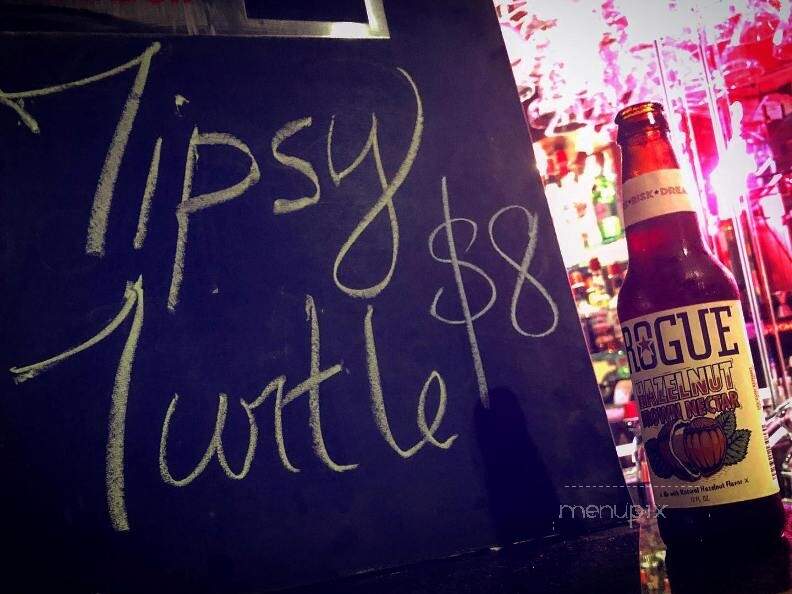 Tipsy
Turtle $8
RISK • DREA
ROGUE
HAZELNUT
BROWN NECTAR
Ale with Natural Hazelnut Flavor
12 FL. OZ.
menupix